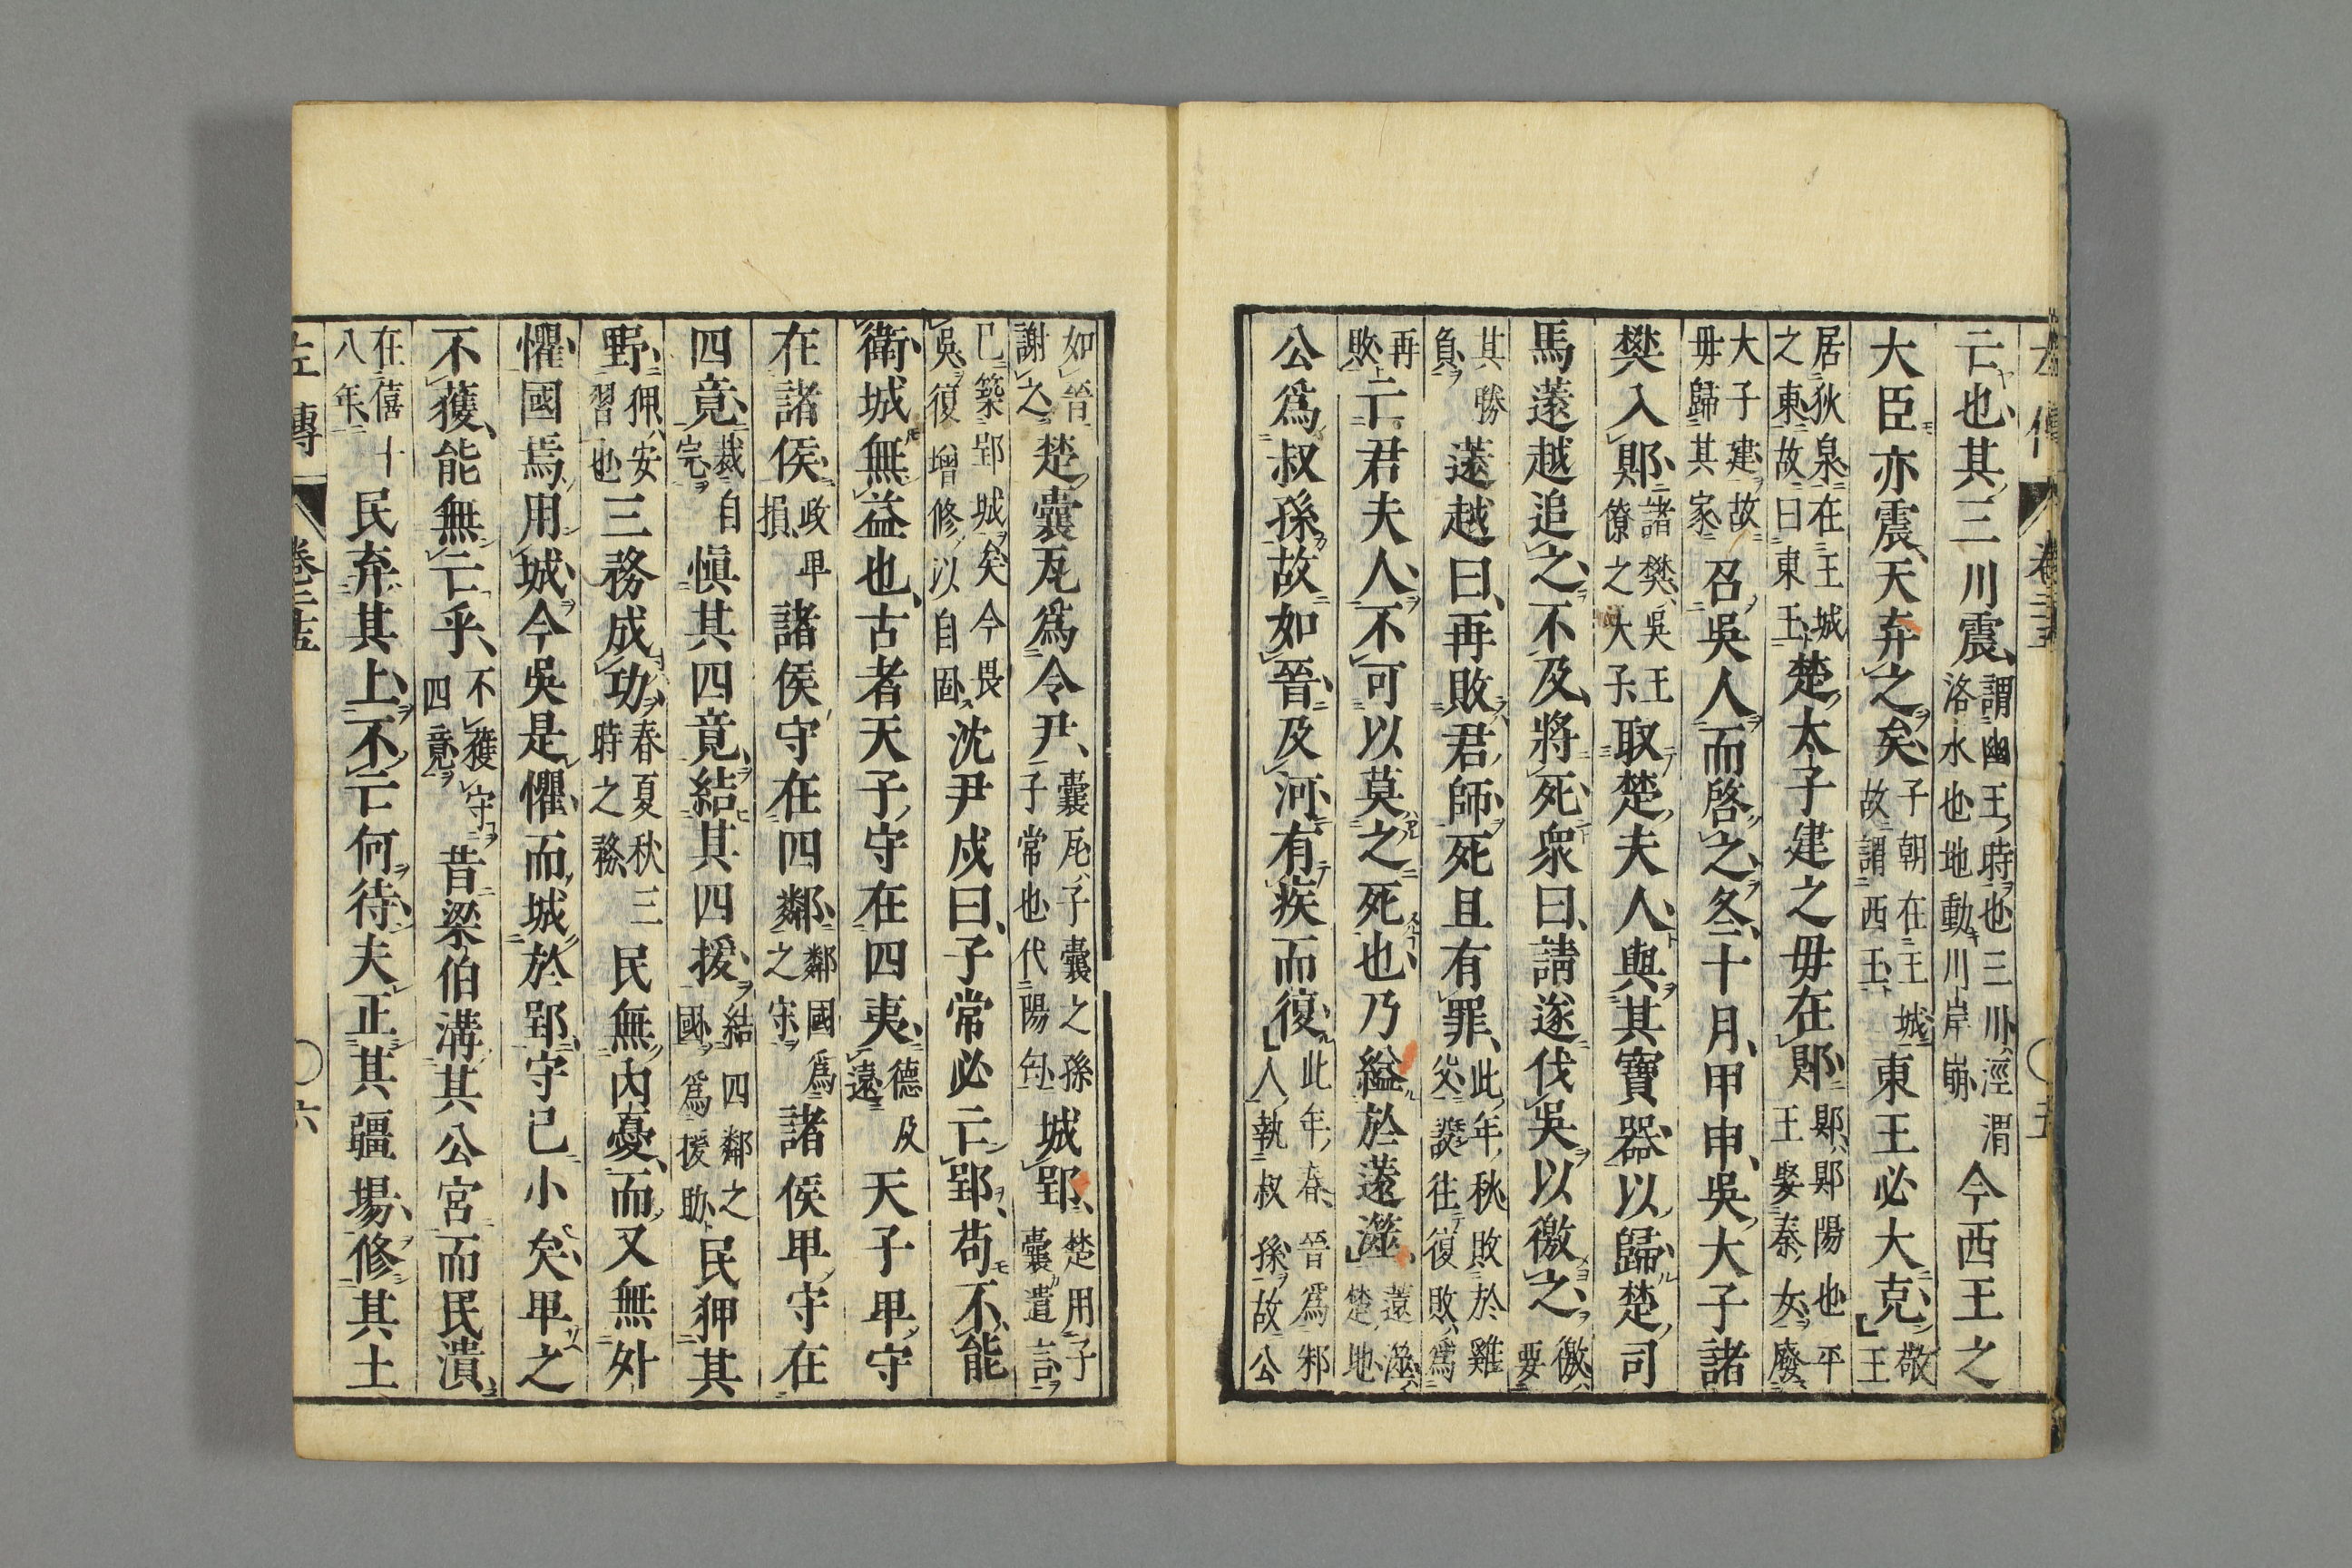 左傳 卷二十五 五
亡也、其三川震、謂幽王時也三川、涇渭洛水也地動川岸崩、今西王之
大臣亦震、天弃之矣、子朝在王城故謂西王、東王必大克、敬王
居狄泉在王城之東故曰東王、楚太子建之母在郹、郹、郹陽也平王娶秦女廢
大子建故母歸其家、召吳人而啓之、冬、十月、甲申、吳大子諸
樊入郹、諸樊、吳王僚之大子、取楚夫人與其寶器以歸、楚司
馬薳越追之、不及、將死、衆曰、請遂伐吳以徼之、徼、要
其勝負、薳越曰、再敗君師、死且有罪、此年秋敗於雞父、設往復敗、爲
再敗、亡君夫人、不可以莫之死也、乃縊於薳澨、薳澨、楚地、
公爲叔孫故如晉、及河有疾而復、此年春、晉爲邾人執叔孫、故公
如晉謝之、楚囊瓦爲令尹、囊瓦、子囊之孫子常也代陽匄、城郢、楚用子囊遺言
已築郢城矣今畏吳復增修以自固、沈尹戌曰、子常必亡郢、苟不能
衛、城無益也、古者天子守在四夷、德及遠、天子卑、守
在諸侯、政卑損、諸侯守在四鄰、鄰國爲之守、諸侯卑、守在
四竟、裁自完、愼其四竟、結其四援、結四鄰之國爲援助、民狎其
野、狎、安習也、三務成功、春夏秋三時之務、民無內憂、而又無外
懼、國焉用城、今吳是懼、而城於郢、守已小矣、卑之
不獲、能無亡乎、不獲守四竟、昔梁伯溝其公宮而民潰、
在僖十八年、民弃其上、不亡何待、夫正其疆場、修其土
左傳 卷二十五 六